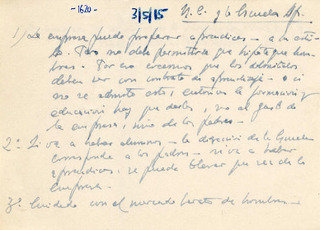 -1620-
3/5/15
N.C. y la Escuela Ap.
1) La empresa puede preparar aprendices - a la
. Pero no debe permitirse que
. Por eso creemos que los
deben ser con contrato de aprendizaje - o si
no se admite esto, entonces la formación y
educación hay que darles, no al gusto de
la empresa, sino de los padres.
2º: Si va a haber alumnos - la dirección de la Escuela
corresponde a los padres - si va a haber
aprendices: se puede llevar que sea de la
Empresa.
3º. Cuidado con el mercado barato de hombres -